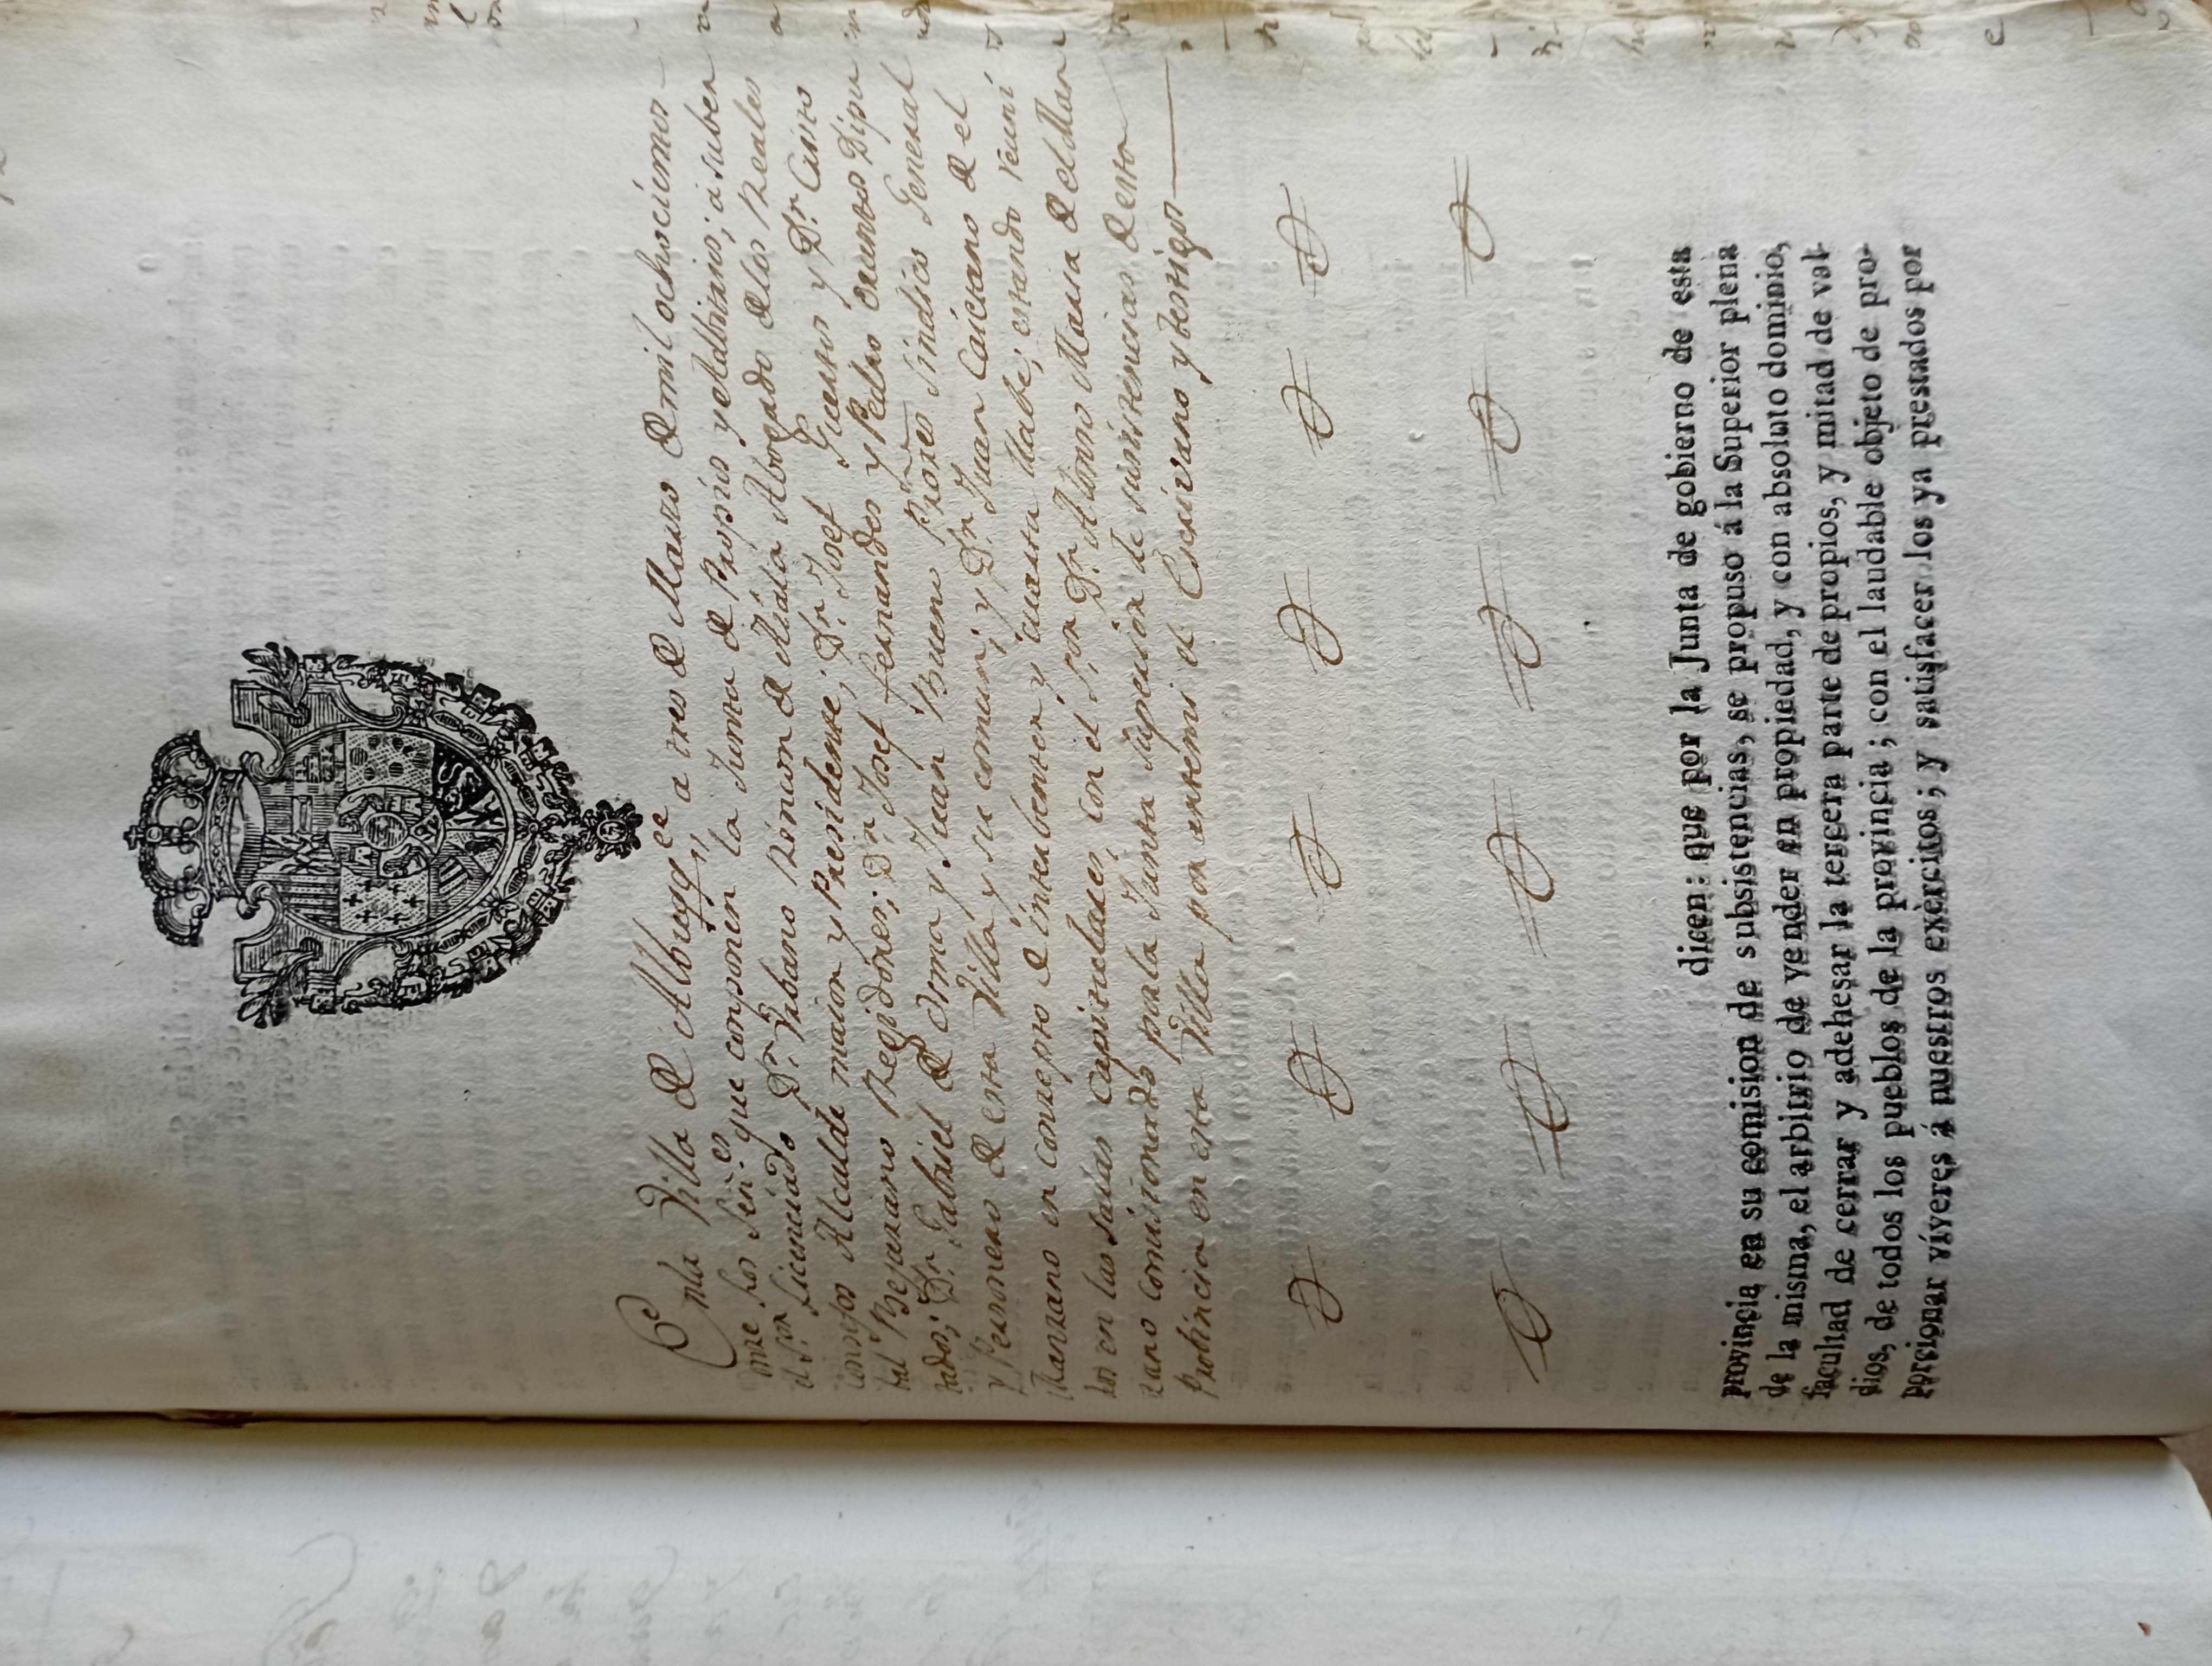 En la Villa de Alburqq.ee a tres de Marzo de mil ochocientos
onze los Señ.es que conponen la Junta de Propios y Adbitrios; a suber
el S.or Licenciado D.n Vrbano Rincon de Aiala Abogado de los Reales
consejos Alcalde maior y Presidente; D.n Josef Guertos y D.n Cristo
bal Bejarano Regidores; D.n Josef fernandes y Pedro oruntos Dipu
tados; D.n Gabriel de Osma y Juan Bueno Prōres Sindico General
y Personero de esta Villa y su comun; y D.n Juan Caietano de el
Manzano en conzepto de interbentor y cuarta llabe; estando reuni
dos en las salas capitulares, con el S.or D.n Alonso Maria de el Man
zano comisionado por la Junta Superior de susistencias de esta
Probincia en esta Villa por antemi el Escrivano y testigos
dicen: que por la Junta de gobierno de esta
provincia en su comision de subsistencias, se propuso á la Superior plena
de la misma, el arbitrio de vender en propiedad, y con absoluto dominio,
facultad de cerrar y adehesar la tercera parte de propios, y mitad de val-
dios, de todos los pueblos de la provincia; con el laudable objeto de pro-
porcionar víveres á nuestros exèrcitos; y satisfacer los ya prestados por